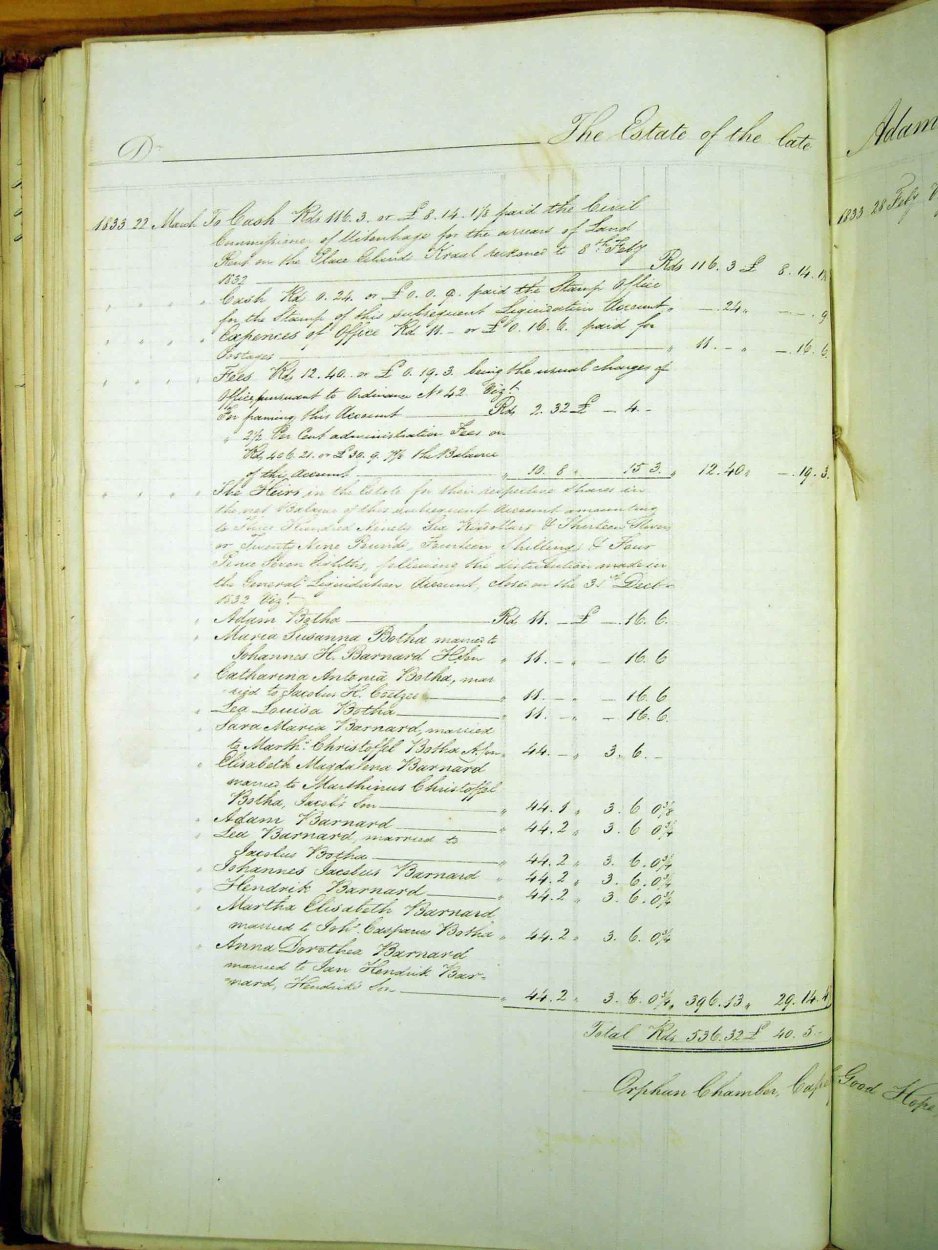 Dr The Estate of the late
1833 22 March To Cash Rds 116. 3. or £ 8. 14. 1⅞ paid the Civil
Commissioner of Uitenhage for the arrears of Land
Rent on the Place Eland Kraal reckoned to 8th Feby
1832 Rds 116. 3 £ 8. 14. 1⅞
" " " " Cash Rd 0. 24. or £ 0. 0. 9. paid the Stamp Office
for the Stamp of this subsequent Liquidation Account " — .24 " — . . 9
" " " " Expences of Office Rd 11 — or £ 0. 16. 6. paid for
Postages " 11. — " — . 16. 6
" " " " Fees Rds 12. 40. or £ 0. 19. 3. being the usual charges of
Office pursuant to Ordinance No 42 Vizt.
For framing this Account Rds 2. 32 £ — 4. —
" 2½ Per Cent administration Fees on
Rds 406. 21. or £ 30. 9. 7⅞ the Balance
of this Account " 10. 8 " 15 3. " 12. 40 " — . 19. 3.
" " " " The Heirs in the Estate for their respective Shares in
the net Balance of this subsequent Account amounting
to Three Hundred Ninety Six Rixdollars & Thirteen Stivers
or Twenty Nine Pounds, Fourteen Shillings & Four
Pence Seven Eighths, following the distribution made in
the General Liquidation Account, closed on the 3 Decr
1832 Vizt.
" Adam Botha Rds 11. — £ — . 16. 6.
" Maria Susanna Botha married to
Johannes H. Barnard HSon " 11. — " — 16. 6
" Catharina Antonia Botha, mar
ried to Jacobus H. Coetzee " 11. — " — 16. 6
" Lea Louisa Botha " 11. — " — 16. 6.
" Sara Maria Barnard, married
to Marths Christoffel Botha ASon " 44. — " 3. 6. —
" Elisabeth Magdalena Barnard
married to Marthinus Christoffel
Botha, Jacobs Son " 44. 1 " 3. 6 0⅜
" Adam Barnard " 44. 2 " 3. 6 0¾
" Lea Barnard, married to
Jacobus Botha " 44. 2 " 3. 6. 0¾
" Johannes Jacobus Barnard " 44. 2 " 3. 6. 0¾
" Hendrik Barnard " 44. 2 " 3. 6. 0¾
" Martha Elisabeth Barnard
married to Johs Casparus Botha " 44. 2 " 3. 6. 0¾
" Anna Dorothea Barnard
married to Jan Hendrik Bar-
nard, Hendrik's Son " 44. 2 " 3. 6. 0¾ " 396. 13 " 29. 14. 4
Total Rds 536. 32 £ 40. 5. —
Orphan Chamber, Cape Good Hope
Adam
1833 28 Feby